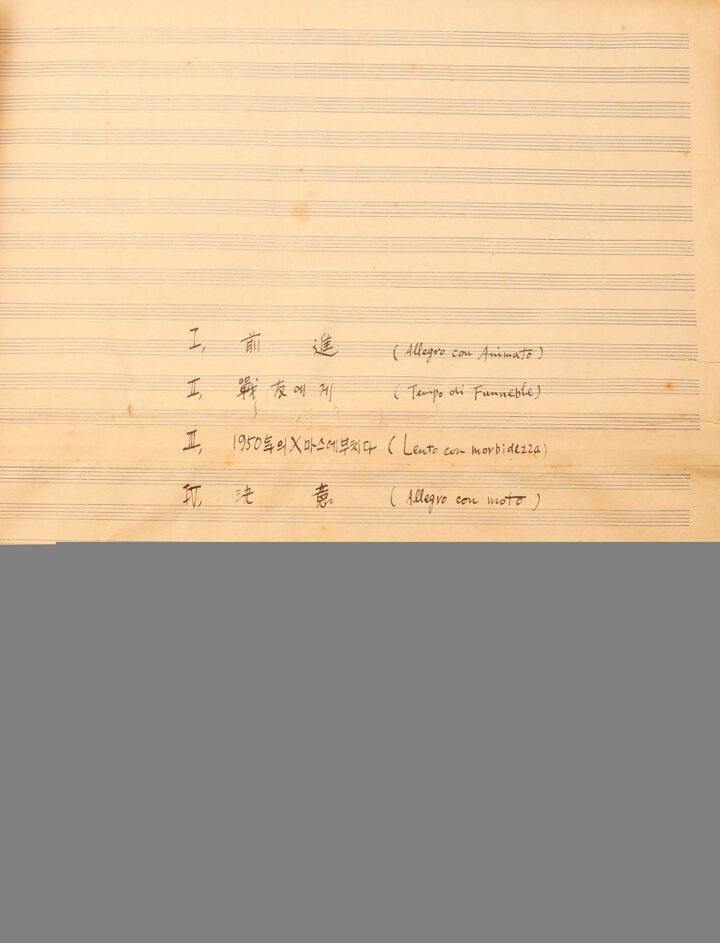 I, 前進 (Allegro con Animato)
II, 戰友에게 (Tempo di Funueble)
III, 1950年의 X마스에부치다 (Lento con morbidezza)
IV, 決意 (Allegro con moto)